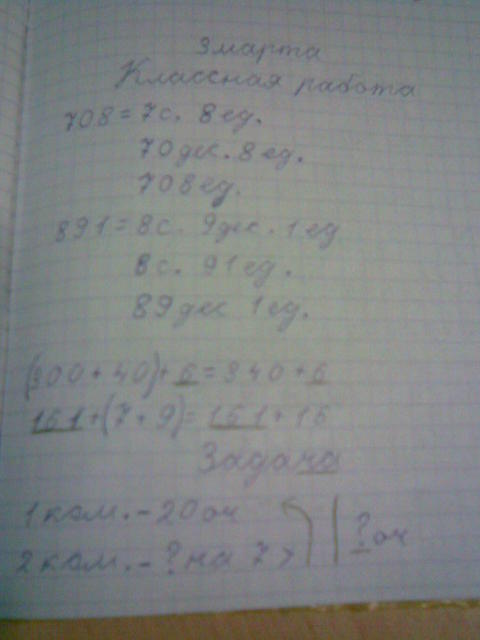 3 марта
Классная работа
708 = 7с. 8ед.
70дес. 8 ед.
708 ед.
891 = 8с. 9дес. 1 ед
8с. 91 ед.
89дес 1 ед.
(300 + 40) + 6 = 340 + 6
161 + (7 + 9) = 161 + 16
Задача
1 ком. - 20 оч
2 ком. - ? на 7 > | ? оч